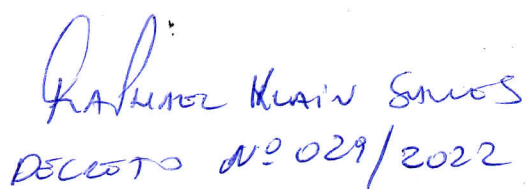 RAPHAEL KLAIN SALLES
DECRETO Nº 029/2022